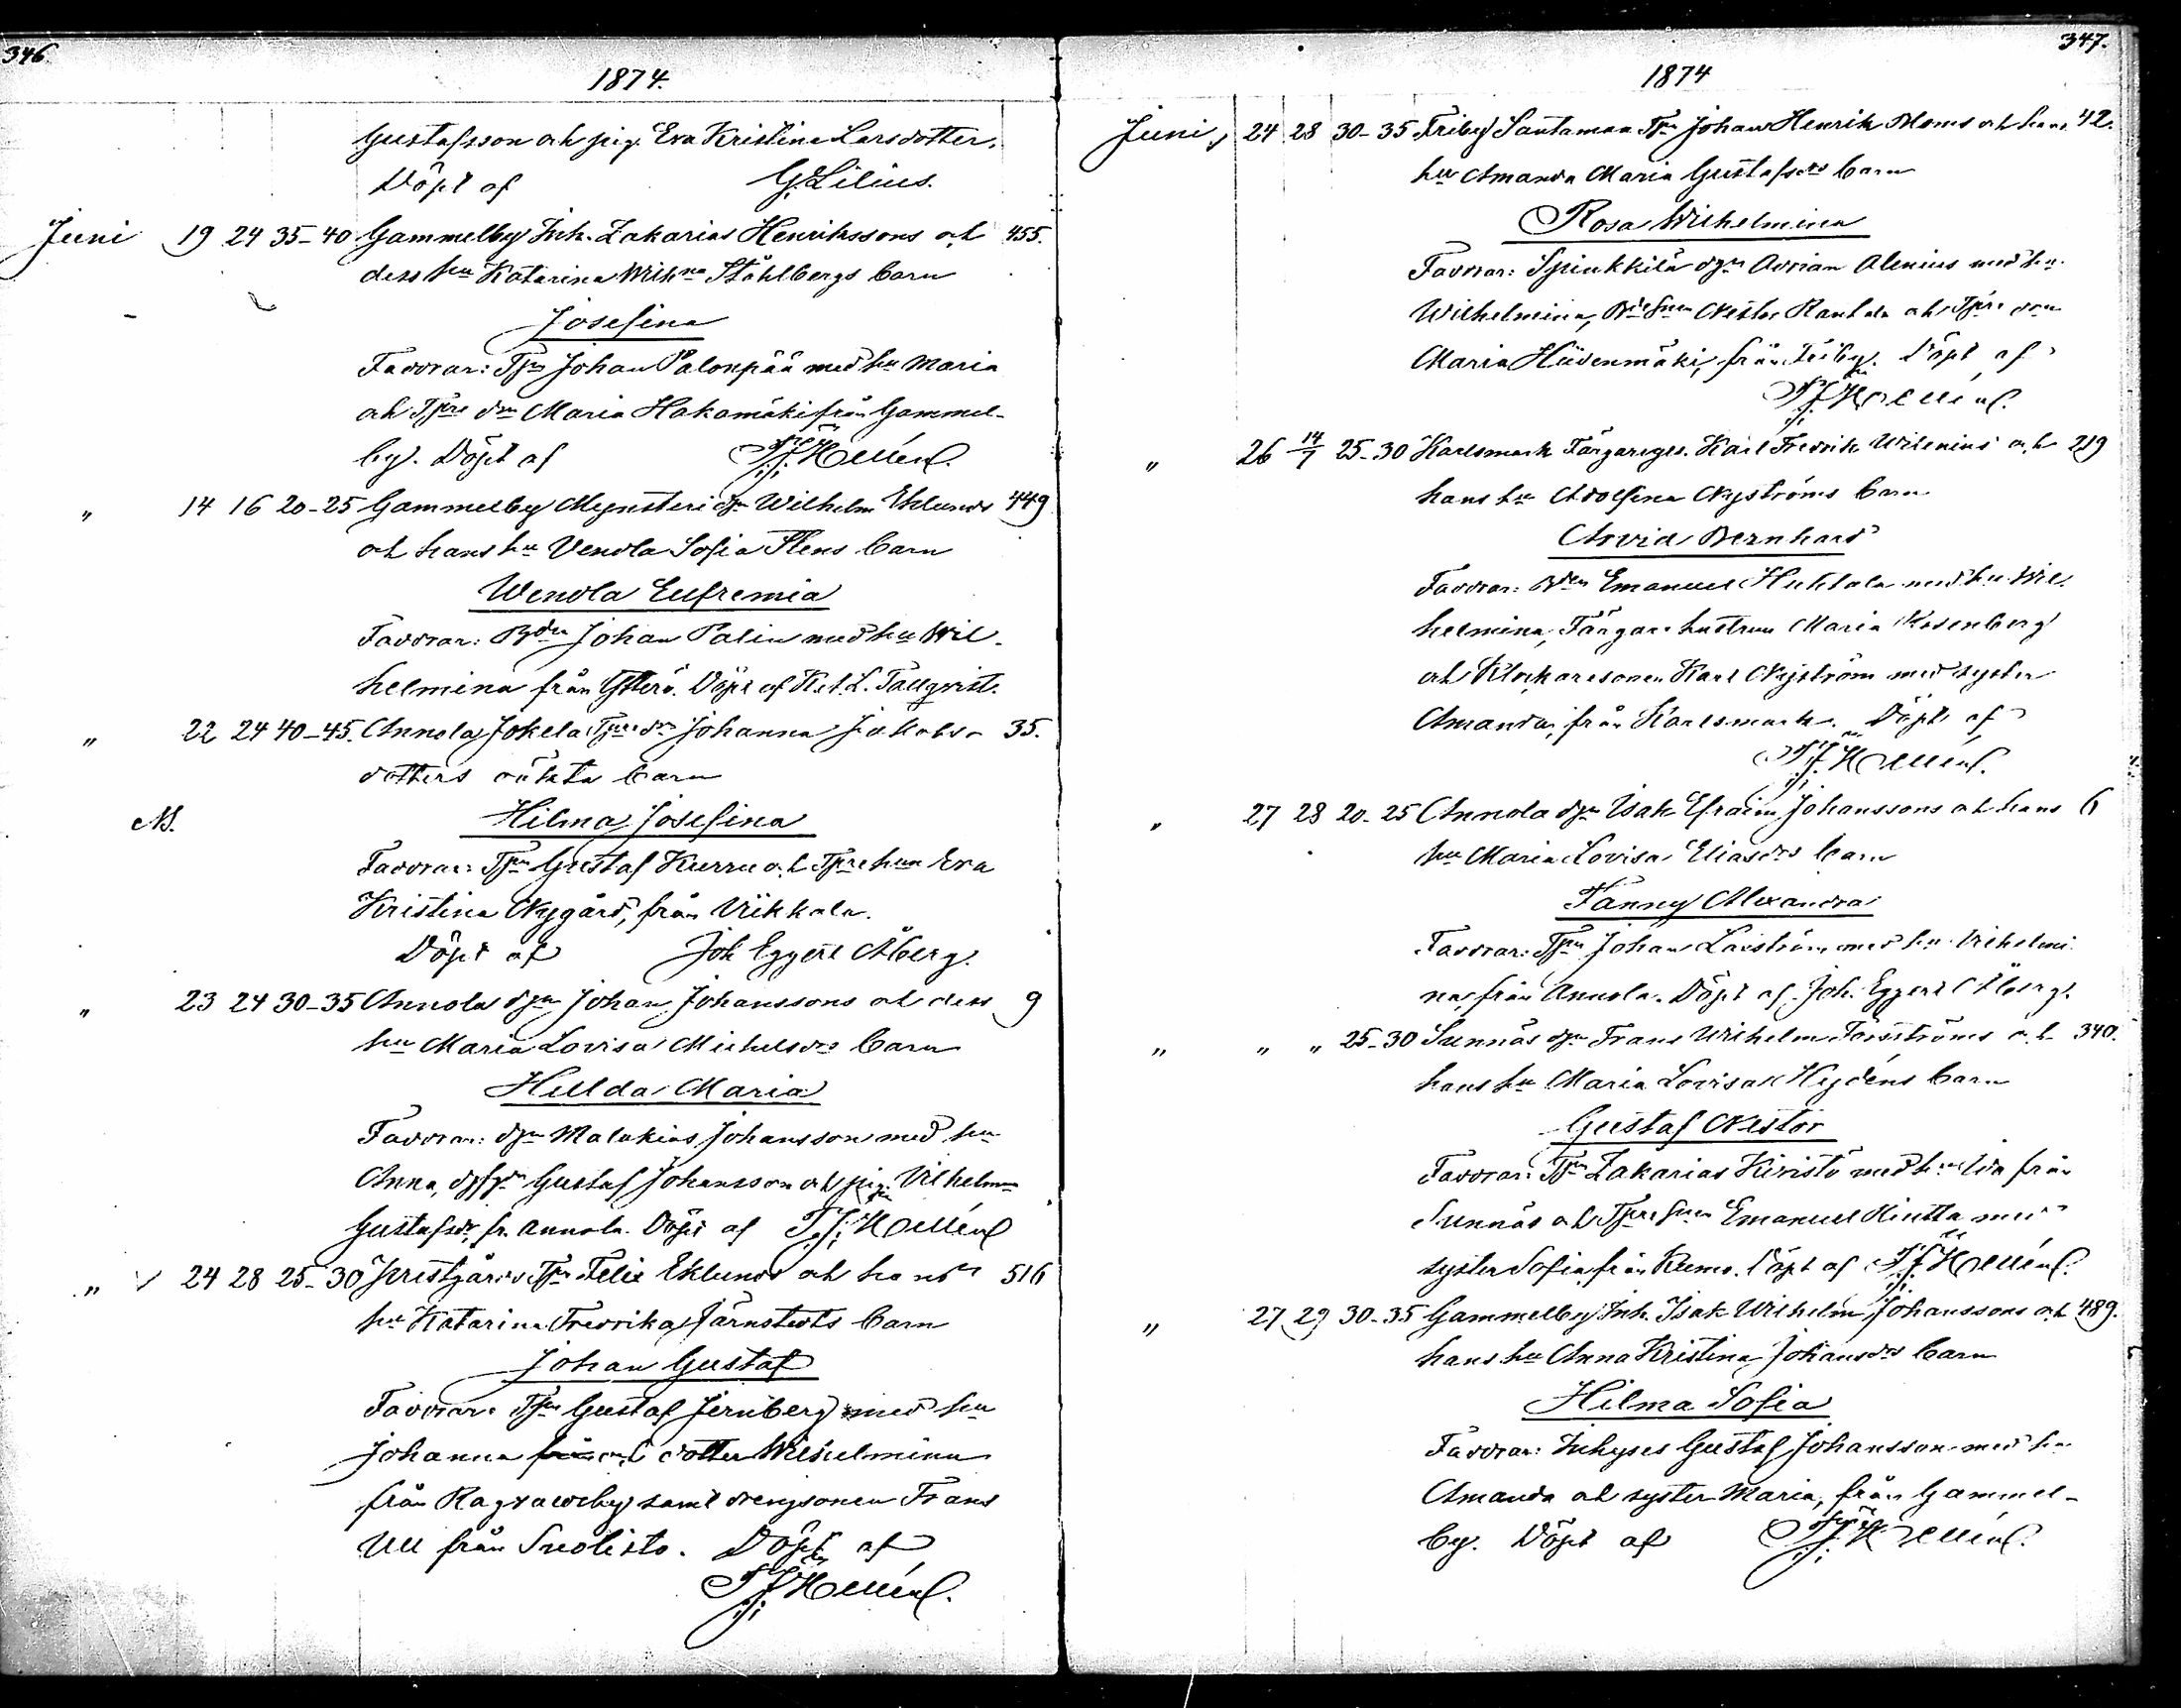 346.
1874.
Gustafsson och pig. Eva Kristina Larsdotter.
Döpt af G. Lilius.
Juni 19 24 35-40 Gammelby Inh. Zakarias Henrikssons och 455.
dess hu Katarina Wilhna Ståhlbergs barn
Josefina
Faddrar: Tpn Johan Palonpää med hu Maria
och Tpre drn Maria Hakamäki från Gammel-
by. Döpt af
" 14 16 20-25 Gammelby Wilhelm Eklunds 449
och hans hu Vendla Sofia Stens barn
Wendla Eufremia
Faddrar: Bdn Johan Palin med hu Wil-
helmina från Ytterö. Döpt af K. A. L. Tallqvist.
" 22 24 40-45. Annola Jokela Tpre drn Johanna Jakobs- 35.
dotters oäkta barn
NB. Hilma Josefina
Faddrar: Tpn Gustaf Kurru och Tpre hun Eva
Kristina Nygård, från Viikkala.
Döpt af Joh Eggert Åberg.
" 23 24 30-35 Annola dgn Johan Johanssons och dess 9
hu Maria Lovisa Michelsdrs barn
Hulda Maria
Faddrar: dgn Malakias Johansson med hu
Anna, Gustaf Johansson och pig. Vilhelmina
Gustafsdr, fr. Annola. Döpt af
" 24 28 25-30 Prestgårds Tpn Felix Eklunds och hans 516
hu Katarina Fredrika Järnstedts barn
Johan Gustaf
Faddrar: Tpn Gustaf Jernberg med hu
Johanna och dotter Wilhelmina
från Ragvaldsby samt drengsonen Frans
Ull från Suolisto. Döpt af
347.
1874
Juni 24 28 30-35 Friby Santamaa Tpn Johan Henrik Moms och hans 42.
hu Amanda Maria Gustafsdrs barn
Rosa Wilhelmina
Faddrar: Spinkkilä dgn Adrian Alenius med hu
Wilhelmina, Bdesnen Nestor Rantala och Tpre drn
Maria Hiidenmäki, från Friby. Döpt af
" 26 14/7 25-30 Karlsmark Färgareges. Karl Fredrik Wilenius och 219
hans hu Adolfina Nyströms barn
Arvid Bernhard
Faddrar: Bden Emanuel Huhtala med hu Wil-
helmina, Färgare hustrun Maria Rosenberg
och Klockaresonen Karl Nyström med syster
Amanda, från Karlsmark. Döpt af
" 27 28 20-25 Annola dgn Isak Efraim Johanssons och hans 6
hu Maria Lovisa Eliasdrs barn
Fanny Alexandra
Faddrar: Tpn Johan med hu Vilhelmi-
na, från Annola. Döpt af Joh. Eggert Åberg.
" " " 25-30 Sunnäs dgn Frans Wilhelm Forsströms och 340.
hans hu Maria Lovisa Hydéns barn
Gustaf Nestor
Faddrar: Tpn Zakarias Kiristö med hu Ida från
Sunnäs och Tpre snen Emanuel Hiutta med
syster Sofia från Kumo. Döpt af
" 27 29 30-35 Gammelby Inh. Isak Wilhelm Johanssons och 489.
hans hu Anna Kristina Johansdrs barn
Hilma Sofia
Faddrar: Inhyses Gustaf Johansson med hu
Amanda och syster Maria, från Gammel-
by. Döpt af